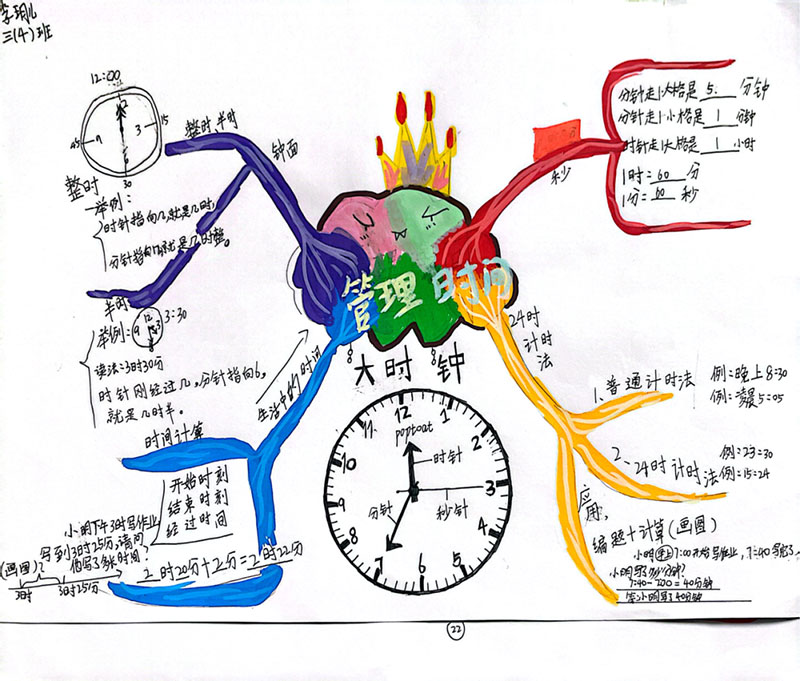 三(4)班
12:00
12
3
15
6
30
9
45
整时
举例:
时针指向几,就是几时,
半时
举例:
12
3
9
3:30
读法:3时30分
时针刚经过几,分针指向6,
就是几时半。
整时、半时
钟面
管理时间
大时钟
12
1
2
3
4
5
6
7
8
9
10
11
时针
分针
秒针
秒
分针走1大格是 5 分钟
分针走1小格是 1 分钟
时针走1大格是 1 小时
1时= 60 分
1分= 60 秒
24时
计时
法
1、普通计时法
例:晚上8:30
例:凌晨5:05
2、24时计时法
例:23:30
例:15:24
应用
编题+计算(画图)
小明晚上7:00开始写作业,7:40写完了,
7:40-7:00=40分钟
答:小明写了40分钟
生活中的时间
时间计算
开始时刻
结束时刻
经过时间
小明下午3时写作业
写到3时25分,请问
他写了多长时间?
(画图)
3时
3时25分
2时20分+2分=2时22分
22